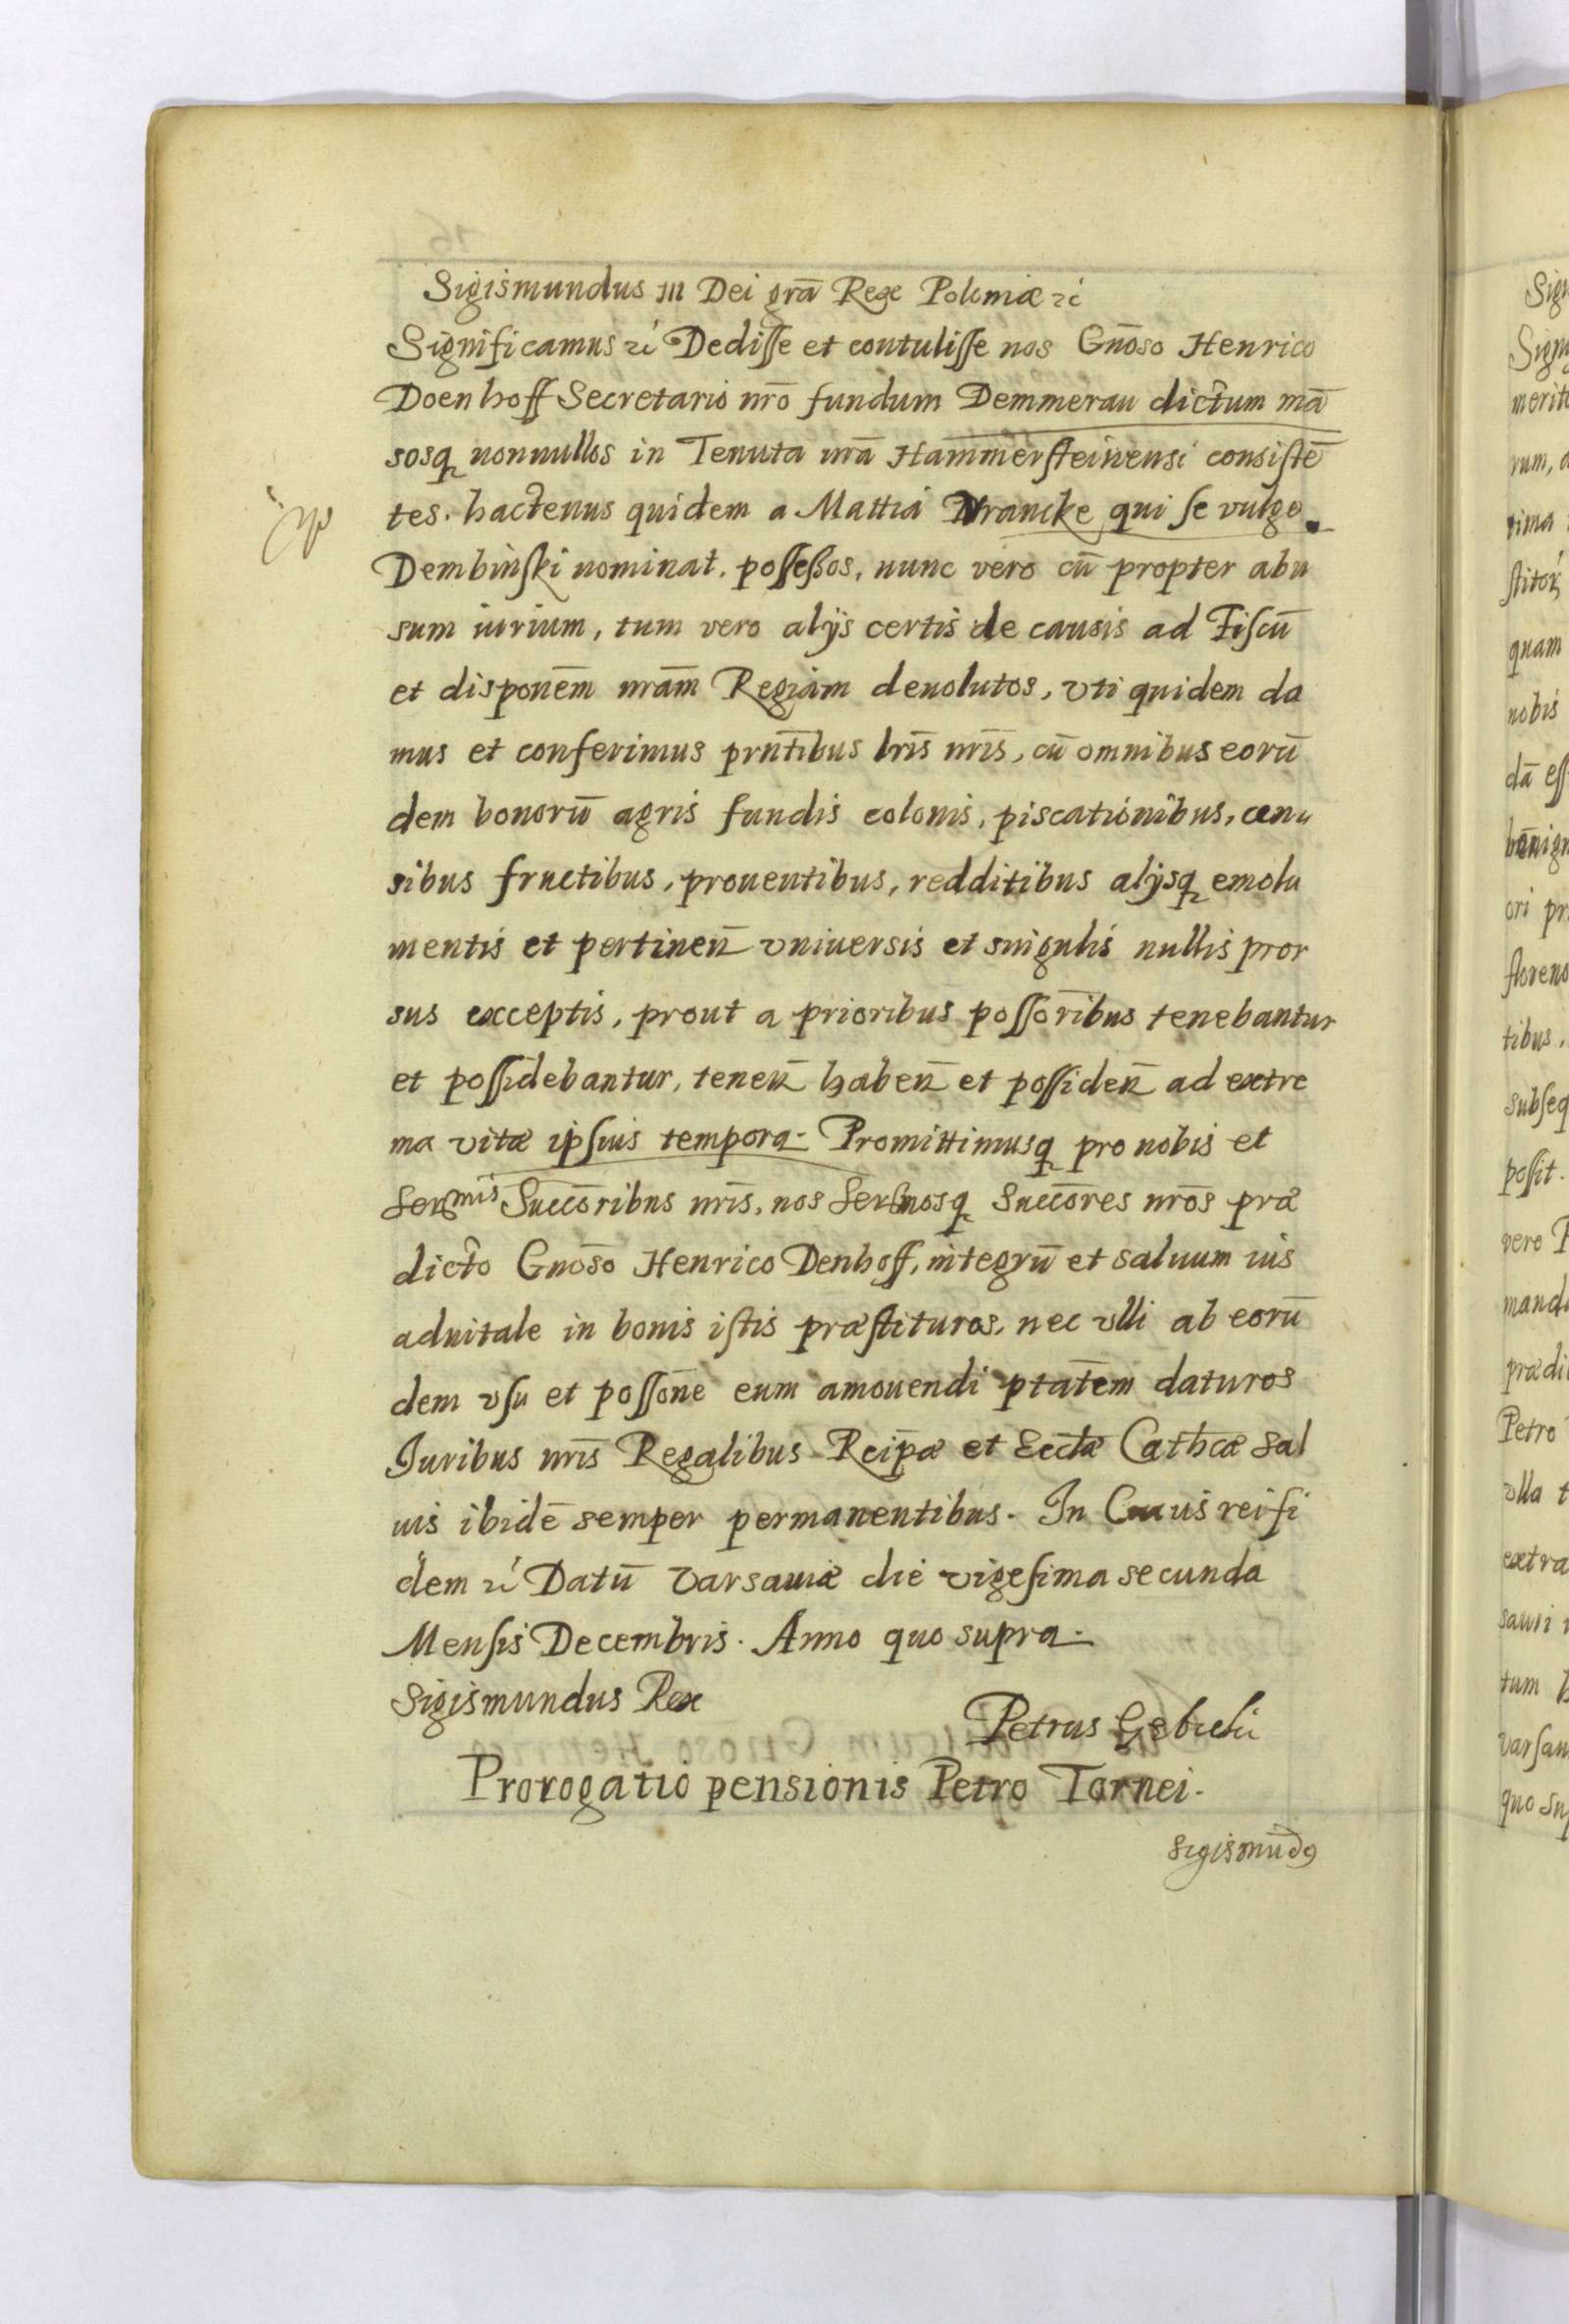 Sigismundus III Dei grã Rege Poloniæ ꝛc
Significamus ꝛc Dedisse et contulisse nos Gnõso Henrico
Doenhoff Secretario nrõ fundum Demmerau dictum mã
sosq nonnullos in Tenuta nrã Hammersteinensi consistẽ
tes. hactenus quidem a Mattia Wrancke qui se vulgo
Dembinski nominat. possessos, nunc vero cũ propter abu
sum iurium, tum vero alijs certis de causis ad Fiscũ
et disponẽm nrãm Regiam deuolutos, vti quidem da
mus et conferimus prñtibus lrĩs nrĩs, cũ omnibus eorũ
dem bonorũ agris fundis colonis, piscationibus, cen
sibus fructibus, prouentibus, redditibus alijsq emolu
mentis et pertineñ vniuersis et singulis nullis pror
sus exceptis, prout a prioribus possõribus tenebantur
et possidebantur, teneñ habeñ et possideñ ad extre
ma vitæ ipsius tempora. Promittimusq pro nobis et
Serẽmis Succõribus nrĩs, nos Serẽmosq Succõres nrõs præ
dicto Gnõso Henrico Denhoff, integrũ et saluum ius
aduitale in bonis istis præstituros, nec vlli ab eorũ
dem vsu et possõne eum amouendi ptatẽm daturos
Juribus nrĩs Regalibus Reip̃æ et Eccl̃æ Cathc̃æ Sal
uis ibidẽ semper permanentibus. In Cuius rei fi
dem ꝛc Datũ Varsauiæ die vigesima secunda
Mensis Decembris. Anno quo supra.
Sigismundus Rex
Petrus Gebicki
Prorogatio pensionis Petro Tornei.
Sigismũdꝯ